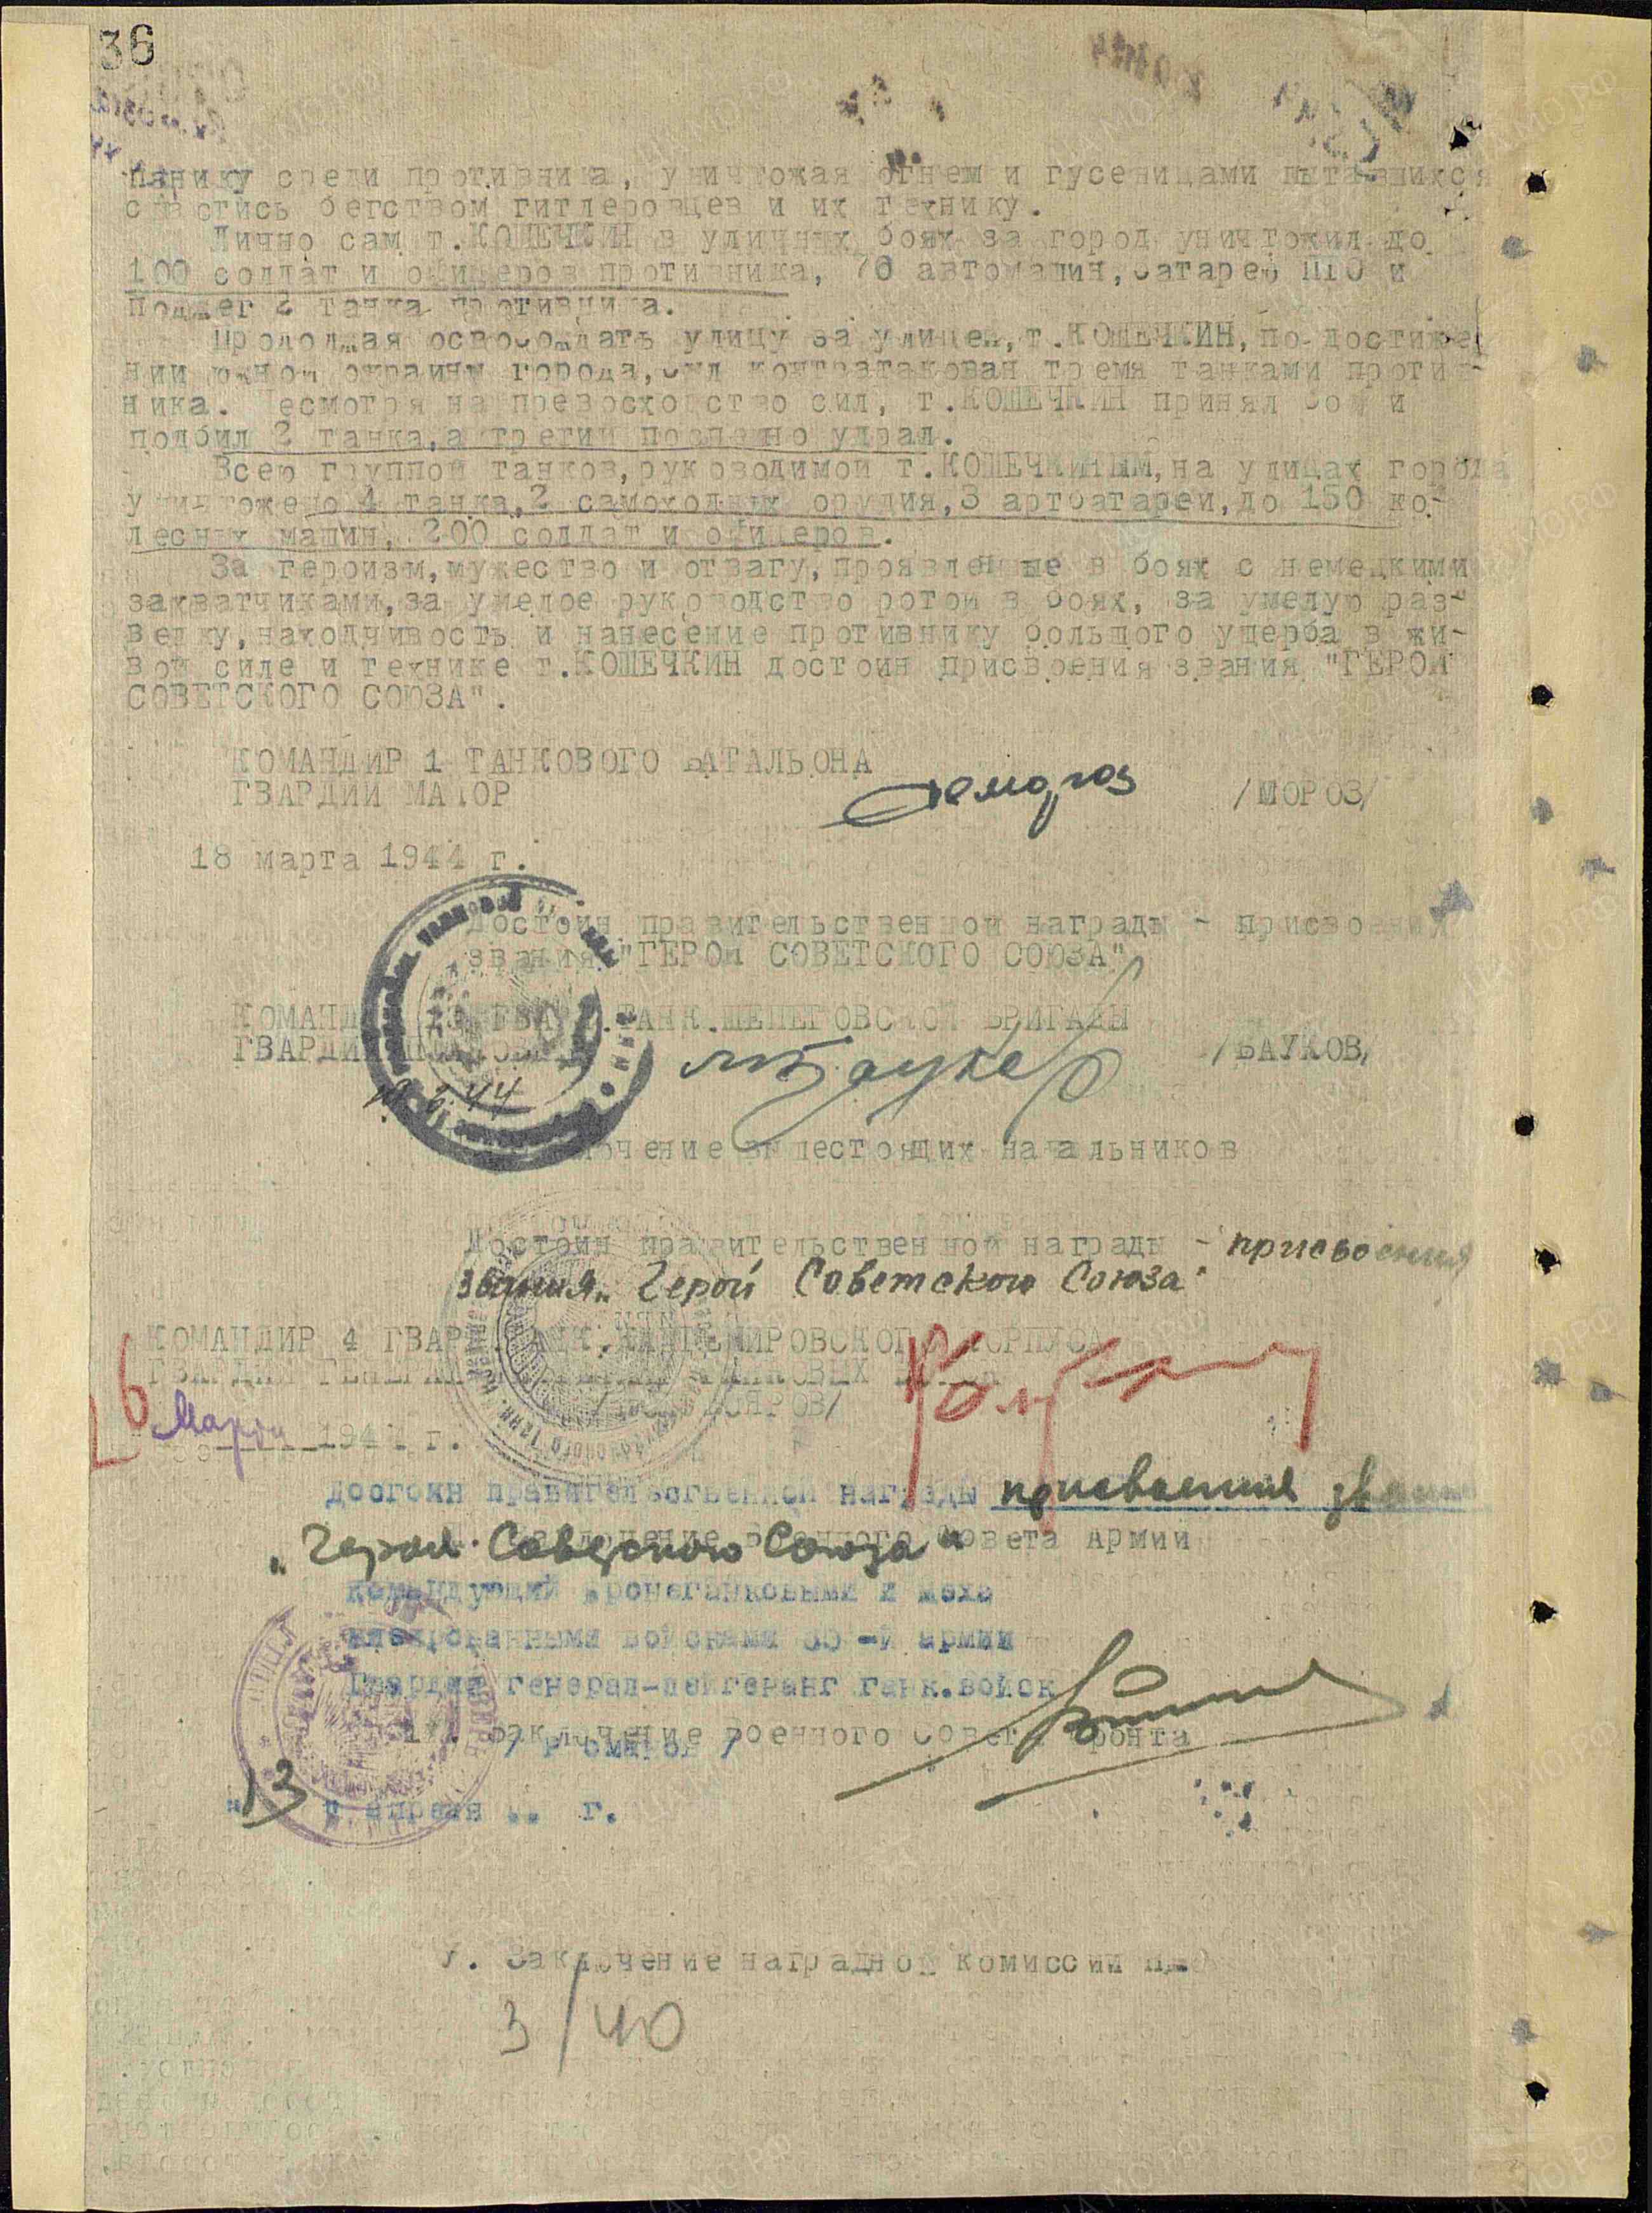 36
панику среди противника, уничтожая огнем и гусеницами пытавшихся
спастись бегством гитлеровцев и их технику.
Лично сам т.КОШЕЧКИН в уличных боях за город уничтожил до
100 солдат и офицеров противника, 76 автомашин, батарею ПТО и
поджег 2 танка противника.
Продолжая освобождать улицу за улицей, т.КОШЕЧКИН, по достиже-
нии южной окраины города, был контратакован тремя танками против-
ника. Несмотря на превосходство сил, т.КОШЕЧКИН принял бой и
подбил 2 танка, а третий поспешно удрал.
Всего группой танков, руководимой т.КОШЕЧКИНЫМ, на улицах города
уничтожено 4 танка, 2 самоходных орудия, 3 артбатареи, до 150 ко-
лесных машин, 200 солдат и офицеров.
За героизм, мужество и отвагу, проявленные в боях с немецкими
захватчиками, за умелое руководство ротой в боях, за умелую раз-
ведку, находчивость и нанесение противнику большого ущерба в жи-
вой силе и технике т.КОШЕЧКИН достоин присвоения звания "ГЕРОЙ
СОВЕТСКОГО СОЮЗА".
КОМАНДИР 1 ТАНКОВОГО БАТАЛЬОНА
ГВАРДИИ МАЙОР /МОРОЗ/
18 марта 1944 г.
Достоин правительственной награды - присвоения
звания "ГЕРОЙ СОВЕТСКОГО СОЮЗА"
КОМАНДИР ТАНК.ШЕПЕТОВСКОЙ БРИГАДЫ
ГВАРДИИ /БАУКОВ/
3.44
вышестоящих начальников
Достоин правительственной награды - присвоения
звания „Герой Советского Союза"
КОМАНДИР 4 ГВАРД. ТАНК. КАНТЕМИРОВСКОГО КОРПУСА
ГВАРДИИ ГЕНЕРАЛ ТАНКОВЫХ
/ПОЛУБОЯРОВ/
26 Марта 1944 г.
достоин правительственной награды присвоения звания
„Героя Советского Союза"
Заключение Военного Совета Армии
командующий бронетанковыми и меха
низированными войсками -й армии
Гвардии генерал-лейтенант танк.войск
Заключение Военного Совета фронта
/ Романов /
"13" апреля г.
У. Заключение наградной комиссии
3/40